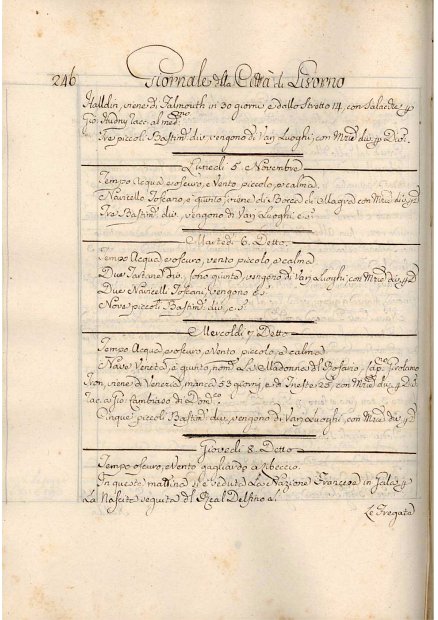 246 Giornale della Città di Livorno
Halldin, viene di Falmouth in 30 giorni, e dallo Stretto 14, con Salacche p
Gio: Hudny racc: al med:mo
Tre piccoli Bastim: div: vengono di Varj Luoghi, con Mrie div: p Div:
Lunedi 5. Novembre
Tempo Acqua, e oscuro, e Vento piccolo, e calma
Navicello Toscano, e giunto, viene di Bocca di Magra con Mrie div: p
Tre Bastim: div: vengono di Varj Luoghi, c: s:
Martedi 6. Detto
Tempo Acqua, e oscuro, vento piccolo, e calma
Due Tartane div: sono giunte, vengono di Varj Luoghi, con Mrie div: p
Due Navicelli Toscani, vengono c: s:
Nove piccoli Bastim: div: c: s:
Mercoldi 7 Detto
Tempo Acqua, e oscuro, e Vento piccolo, e calma
Nave Veneta, e giunto, nom: La Madonna del Rosario, Cap: Girolamo
viene di Venezia manca 53 giorni, e di Trieste 25, con Mrie div: p Div:
rac: a Gio: Cambiaso di Dom:co
Cinque piccoli Bastim: div: vengono di Varj Luoghi, con Mrie div: p
Giovedi 8. Detto
Tempo oscuro, e Vento gagliardo a Libeccio
In questa mattina si è veduta La Nazione Francese in Gala p
La Nascita seguita del Real Delfino a
Le Fregate